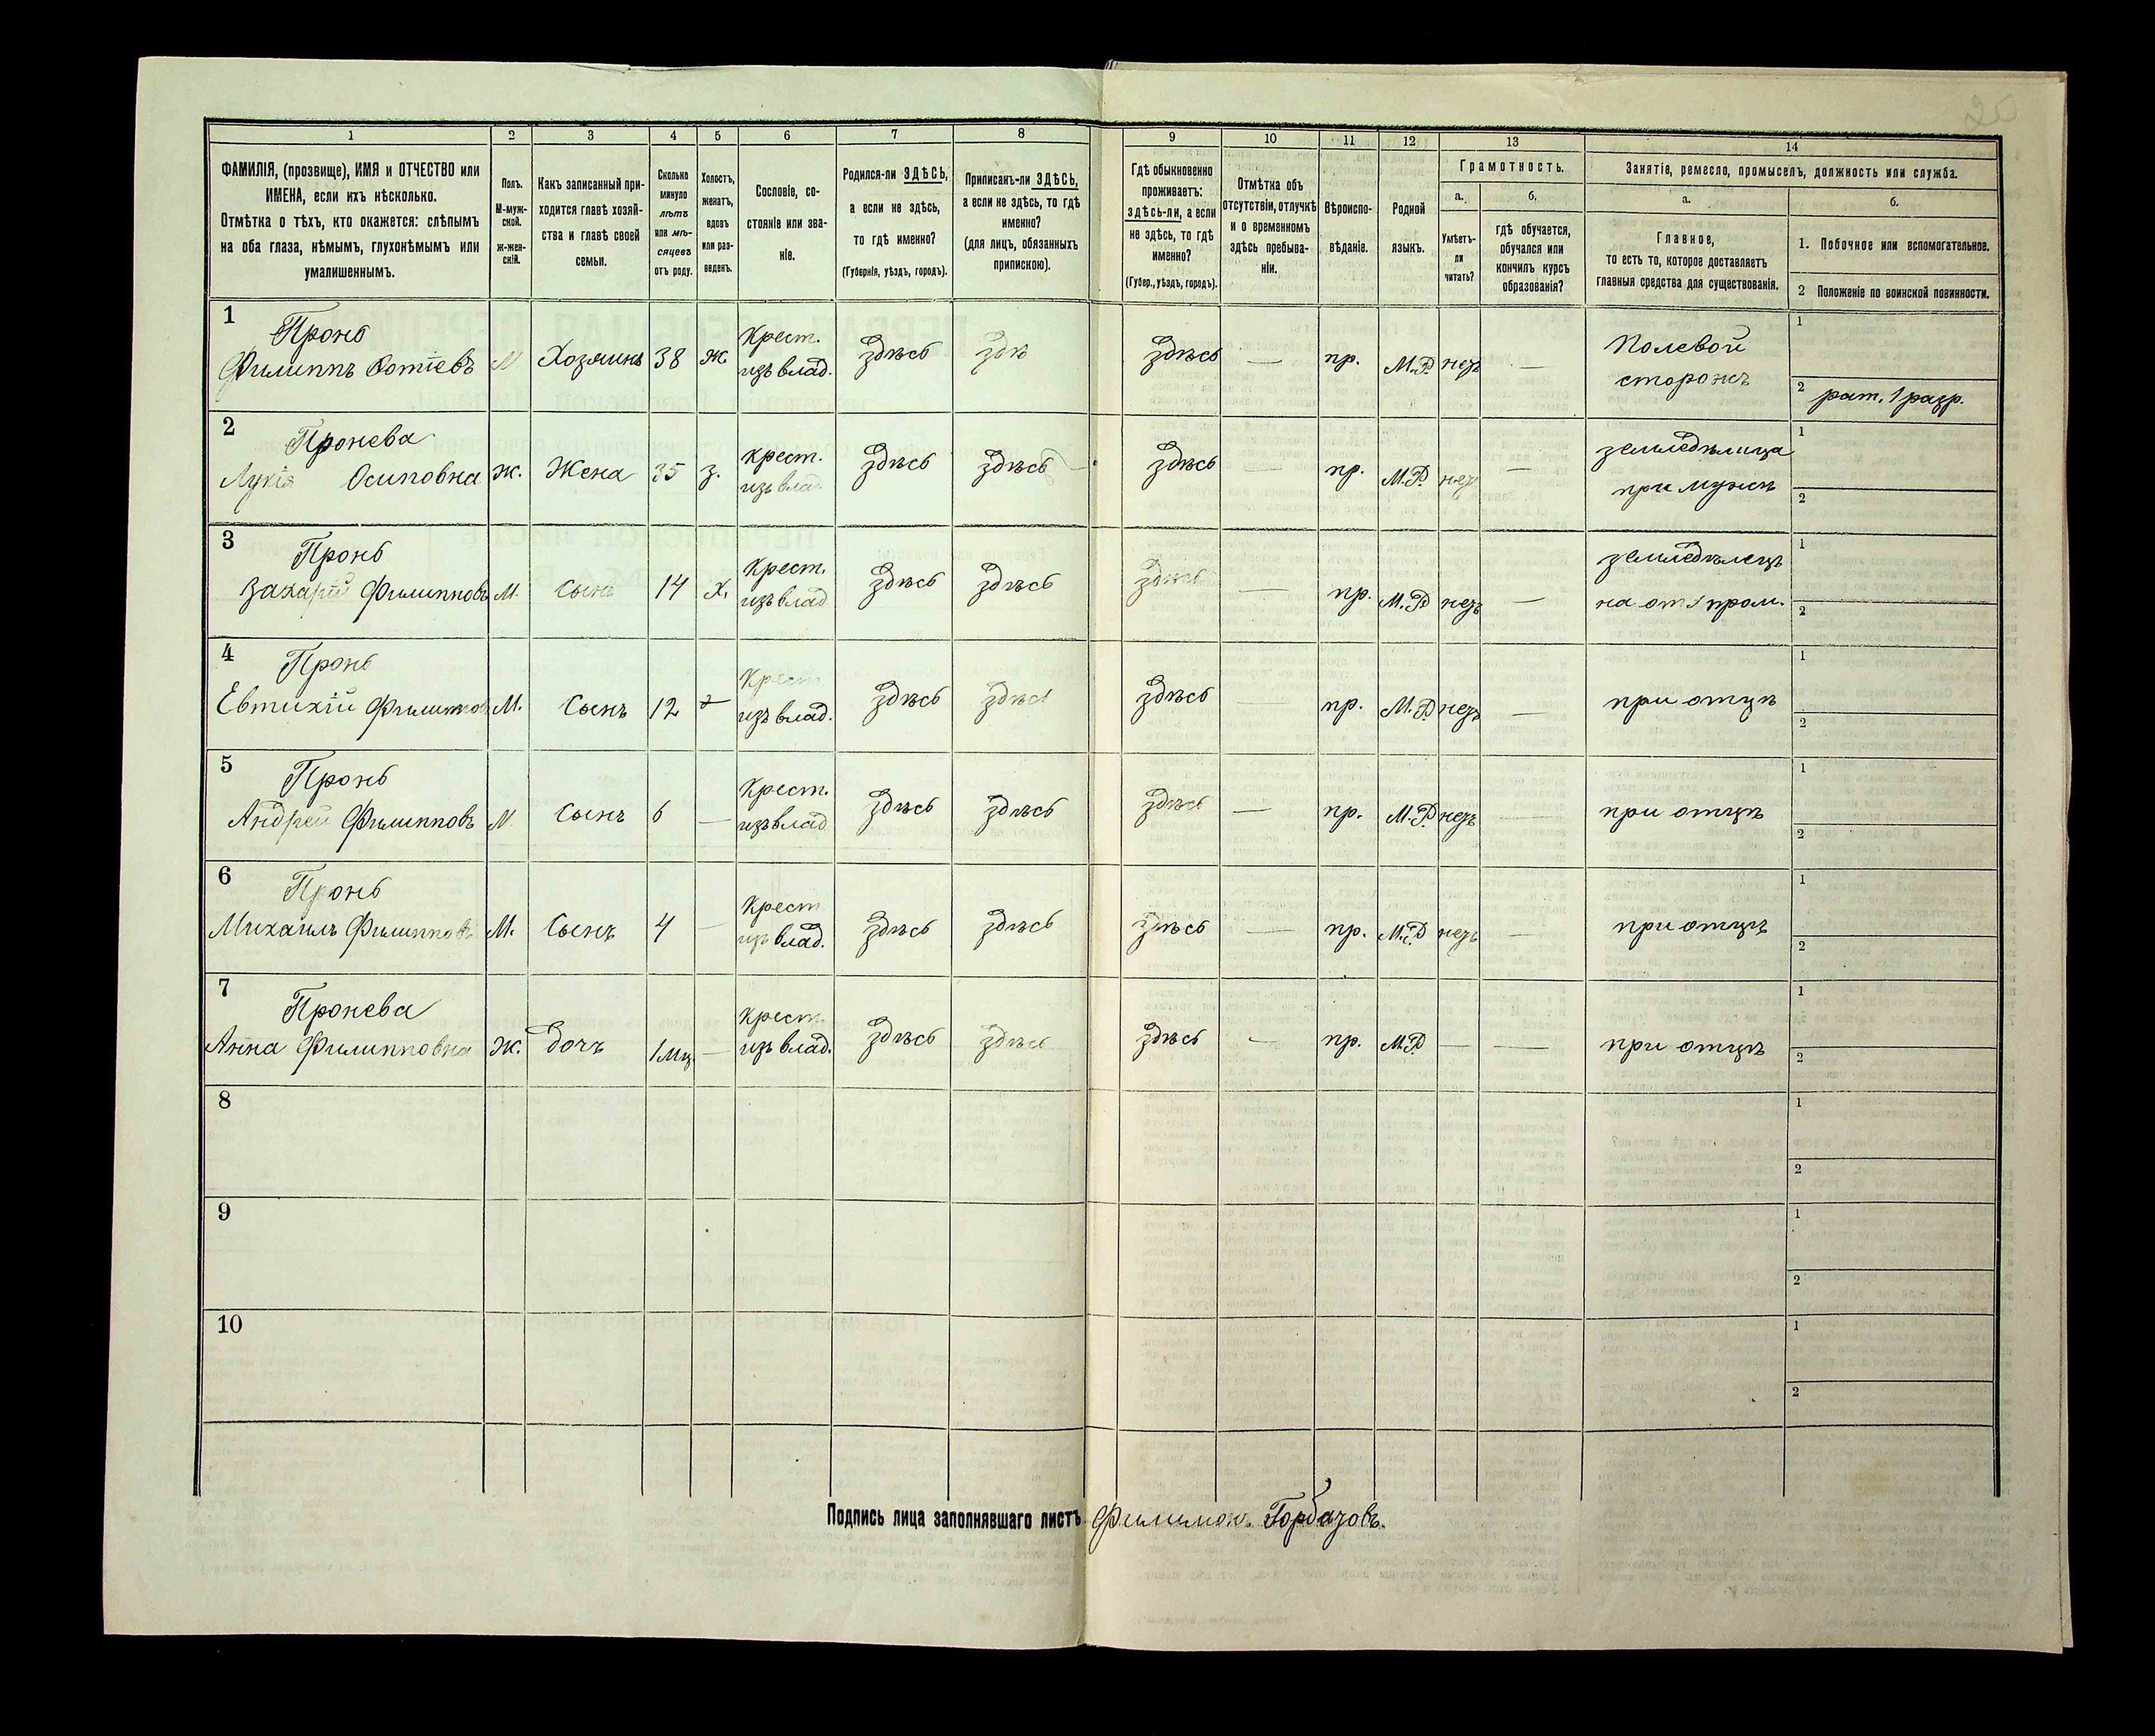 1 2 3 4 5 6 7 8 9 10 11 12 13 14
ФАМИЛІЯ, (прозвище), ИМЯ и ОТЧЕСТВО или
ИМЕНА, если ихъ нѣсколько.
Отмѣтка о тѣхъ, кто окажется: слѣпымъ
на оба глаза, нѣмымъ, глухонѣмымъ или
умалишеннымъ.
Полъ.
М-муж-
ской.
ж-жен-
скій.
Какъ записанный при-
ходится главѣ хозяй-
ства и главѣ своей
семьи.
Сколько
минуло
лѣтъ
или мѣ-
сяцевъ
отъ роду.
Холостъ,
женатъ,
вдовъ
или раз-
веденъ.
Сословіе, со-
стояніе или зва-
ніе.
Родился-ли ЗДѢСЬ,
а если не здѣсь,
то гдѣ именно?
(Губернія, уѣздъ, городъ).
Приписанъ-ли ЗДѢСЬ,
а если не здѣсь, то гдѣ
именно?
(для лицъ, обязанныхъ
припискою).
Гдѣ обыкновенно
проживаетъ:
здѣсь-ли, а если
не здѣсь, то гдѣ
именно?
(Губер., уѣздъ, городъ).
Отмѣтка объ
отсутствіи, отлучкѣ
и о временномъ
здѣсь пребыва-
ніи.
Вѣроиспо-
вѣданіе.
Родной
языкъ.
Грамотность.
а.
Умѣетъ-
ли
читать?
б.
гдѣ обучается,
обучался или
кончилъ курсъ
образованія?
Занятіе, ремесло, промыселъ, должность или служба.
а.
Главное,
то есть то, которое доставляетъ
главныя средства для существованія.
б.
1. Побочное или вспомогательное.
2 Положеніе по воинской повинности.
1 Пронь Крест. Полевой 1
Филиппъ Фотіевъ М Хозяинъ 38 ж. изъ влад. здѣсь здѣ здѣсь — пр. М.Р. нѣтъ — сторожъ
2 рат. 1 разр.
2 Пронева крест. земледѣлица 1
Лукія Осиповна ж. Жена 35 з. изъ влад. здѣсь здѣсь здѣсь — пр. М.Р. нѣтъ — при мужѣ 2
3 Пронь Крест. земледѣлецъ 1
Захарій Филипповъ М. Сынъ 14 х. изъ влад здѣсь здѣсь здѣсь — пр. М.Р. нѣтъ — 2
4 Пронь Крест 1
Евтихій Филипповъ М. Сынъ 12 изъ влад. здѣсь здѣсь здѣсь — пр. М.Р. нѣтъ — при отцѣ 2
5 Пронь Крест. 1
Андрей Филипповъ М. Сынъ 6 — изъ влад здѣсь здѣсь здѣсь — пр. М.Р. нѣтъ — при отцѣ 2
6 Пронь Крест 1
Михаилъ Филипповъ М. Сынъ 4 — изъ влад. здѣсь здѣсь здѣсь — пр. М.Р. нѣтъ — при отцѣ 2
7 Пронева Крест. 1
Анна Филипповна Ж. Дочь 1 мц. — изъ влад. здѣсь здѣсь здѣсь — пр. М.Р. — — при отцѣ 2
8 1
2
9 1
2
10 1
2
Подпись лица заполнявшаго листъ Филимон. Горбазовъ.